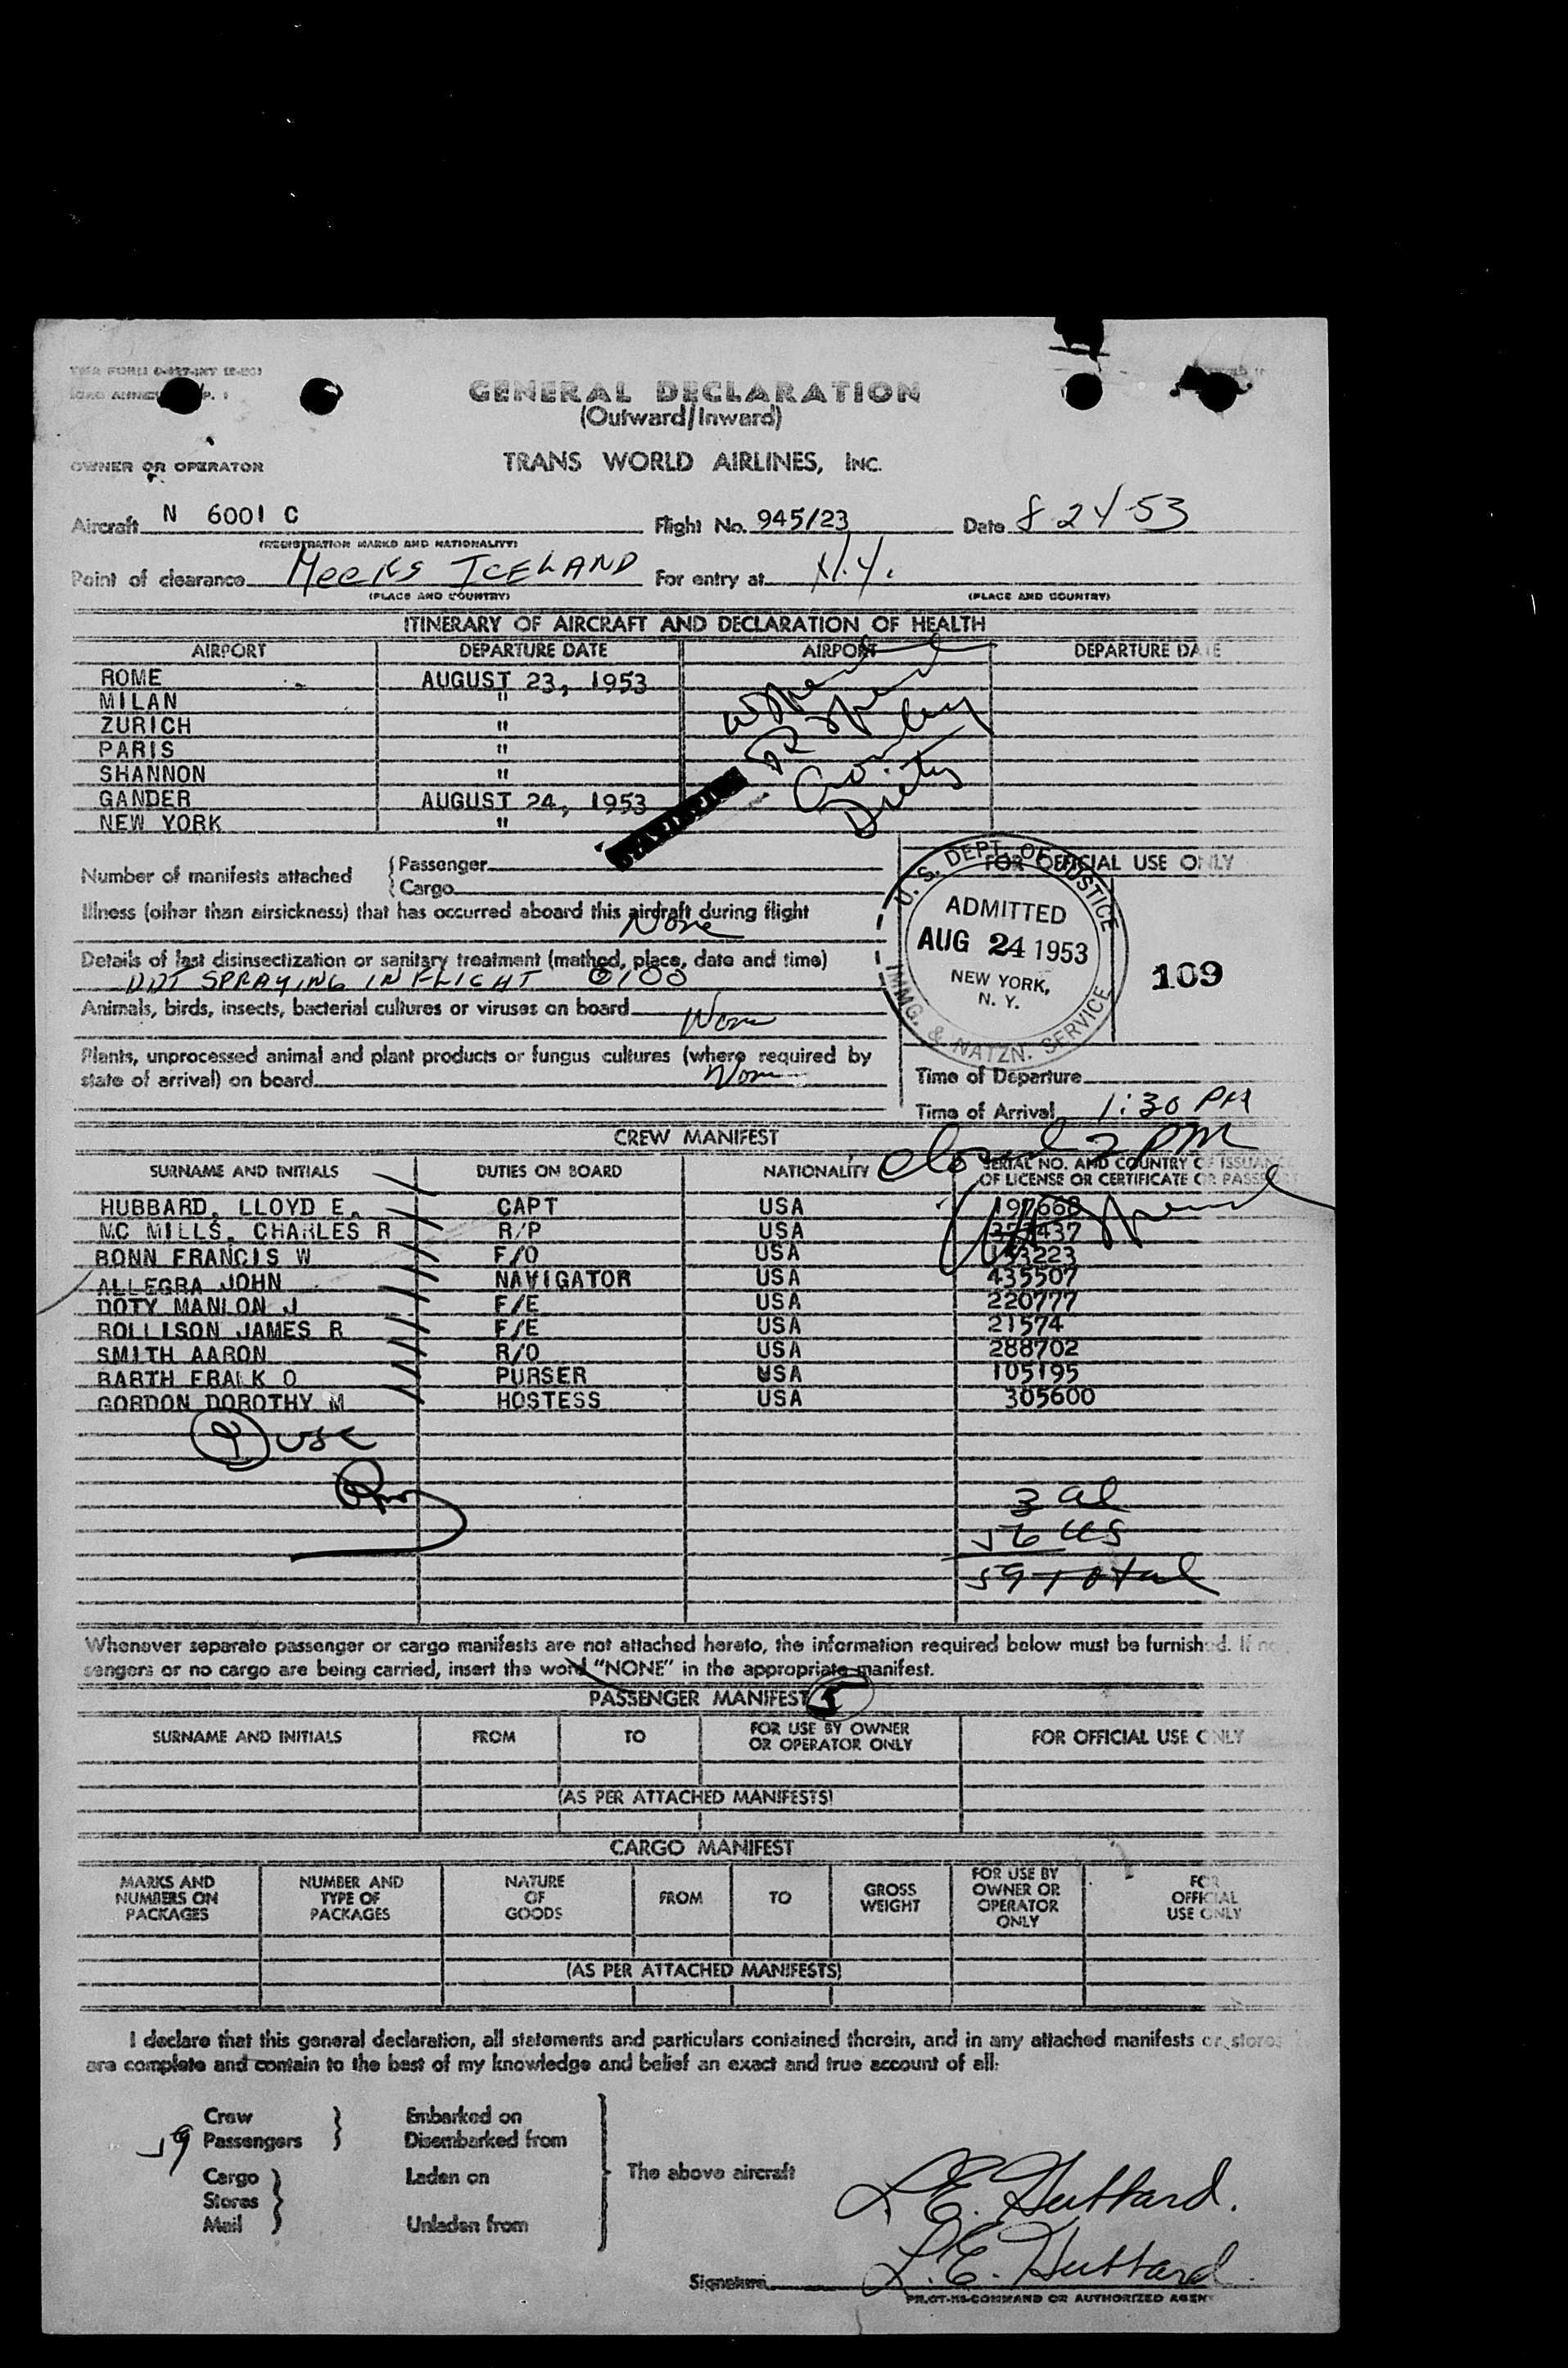 GENERAL DECLARATION
(Outward/Inward)
OWNER OR OPERATOR TRANS WORLD AIRLINES, INC.
Aircraft N 6001 C Flight No. 945/23 Date 8-24-53
(REGISTRATION MARKS AND NATIONALITY)
Point of clearance MEEKS ICELAND For entry at N.Y.
(PLACE AND COUNTRY) (PLACE AND COUNTRY)
ITINERARY OF AIRCRAFT AND DECLARATION OF HEALTH
AIRPORT DEPARTURE DATE AIRPORT DEPARTURE DATE
ROME AUGUST 23, 1953
MILAN "
ZURICH "
PARIS "
SHANNON "
GANDER AUGUST 24, 1953
NEW YORK "
Number of manifests attached { Passenger
{ Cargo
FOR OFFICIAL USE ONLY
Illness (other than airsickness) that has occurred aboard this aircraft during flight
None
Details of last disinsectization or sanitary treatment (method, place, date and time)
DDT SPRAYING IN FLIGHT 0100
Animals, birds, insects, bacterial cultures or viruses on board None
Plants, unprocessed animal and plant products or fungus cultures (where required by
state of arrival) on board None
U. S. DEPT. OF JUSTICE
ADMITTED
AUG 24 1953
NEW YORK,
N. Y.
IMMG. & NATZN. SERVICE
109
Time of Departure
Time of Arrival 1:30 PM
2 PM
CREW MANIFEST
SURNAME AND INITIALS DUTIES ON BOARD NATIONALITY SERIAL NO. AND COUNTRY OF ISSUANCE
OF LICENSE OR CERTIFICATE OR PASSPORT
HUBBARD, LLOYD E. CAPT USA 197668
MC MILLS, CHARLES R R/P USA
BONN FRANCIS W F/O USA
ALLEGRA JOHN NAVIGATOR USA 435507
DOTY MANLON J F/E USA 220777
ROLLISON JAMES R F/E USA 21574
SMITH AARON R/O USA 288702
BARTH FRALK O PURSER USA 105195
GORDON DOROTHY M HOSTESS USA 305600
9 USC
3 al
56 US
59 Total
Whenever separate passenger or cargo manifests are not attached hereto, the information required below must be furnished. If no
sengers or no cargo are being carried, insert the word "NONE" in the appropriate manifest.
PASSENGER MANIFEST 5
SURNAME AND INITIALS FROM TO FOR USE BY OWNER OR OPERATOR ONLY FOR OFFICIAL USE ONLY
(AS PER ATTACHED MANIFESTS)
CARGO MANIFEST
MARKS AND NUMBERS ON PACKAGES NUMBER AND TYPE OF PACKAGES NATURE OF GOODS FROM TO GROSS WEIGHT FOR USE BY OWNER OR OPERATOR ONLY FOR OFFICIAL USE ONLY
(AS PER ATTACHED MANIFESTS)
I declare that this general declaration, all statements and particulars contained therein, and in any attached manifests or stores
are complete and contain to the best of my knowledge and belief an exact and true account of all:
Crew Embarked on
59 Passengers } Disembarked from
Cargo Laden on The above aircraft
Stores }
Mail Unladen from
L. E. Hubbard.
Signature L. E. Hubbard.
PILOT-IN-COMMAND OR AUTHORIZED AGENT